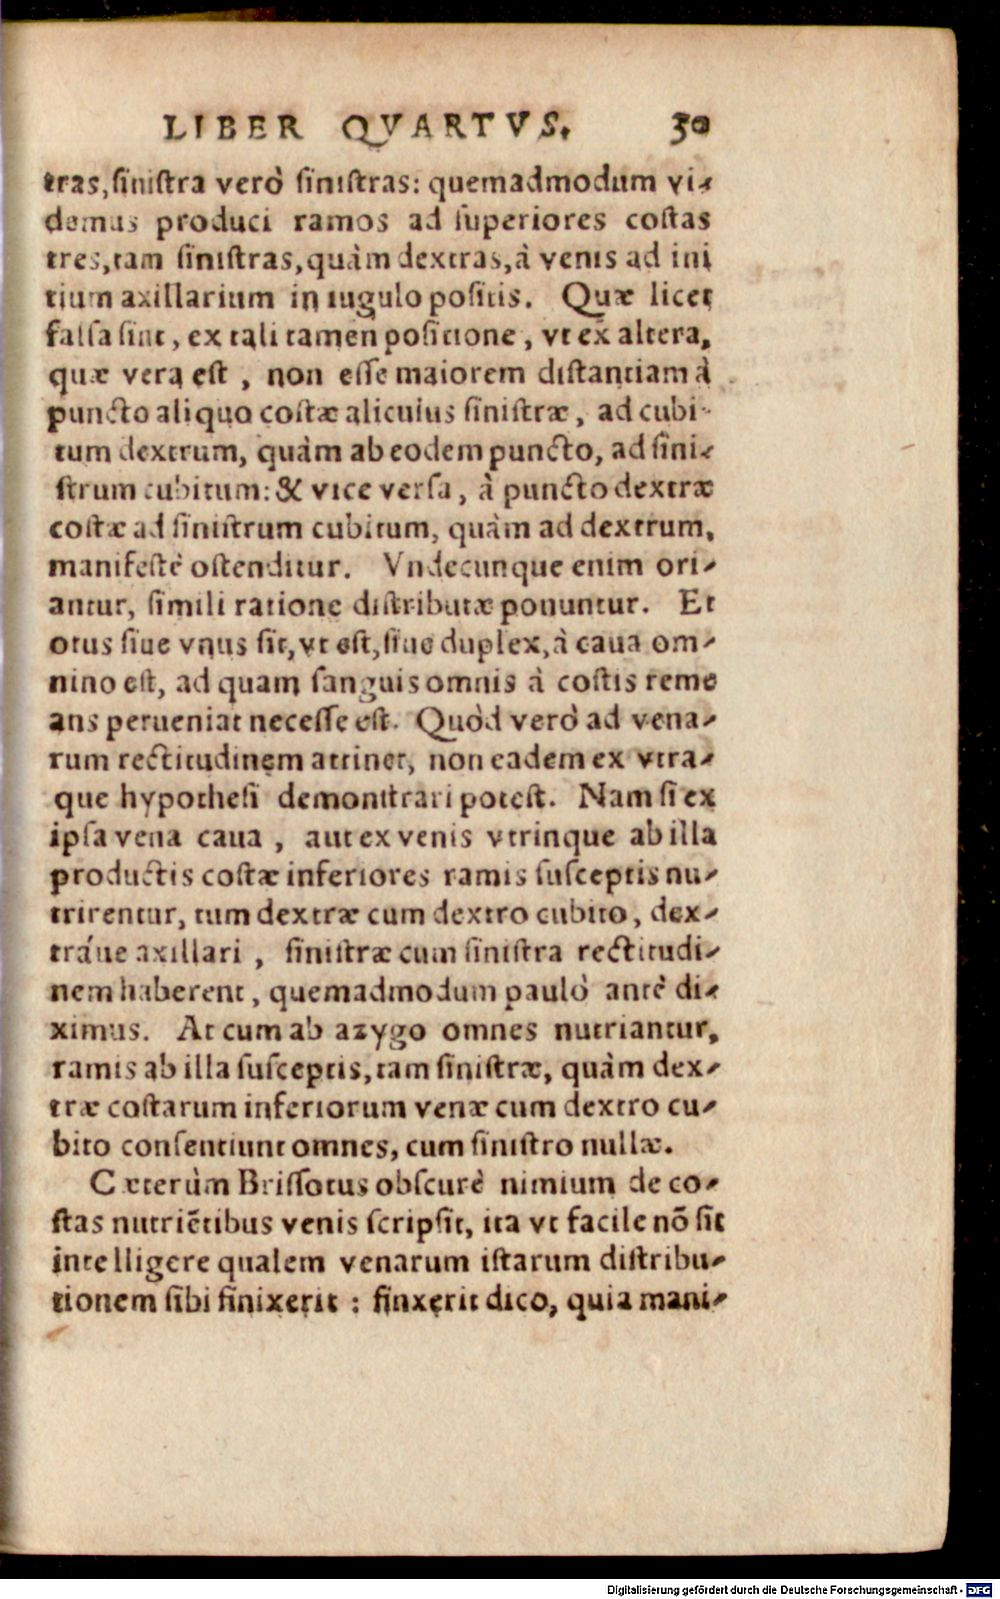 LIBER QVARTVS. 30
tras, ſiniſtra verò ſiniſtras: quemadmodum vi-
demus produci ramos ad ſuperiores coſtas
tres, tam ſiniſtras, quàm dextras, à venis ad ini
tium axillarium in iugulo poſitis. Quæ licet
falſa ſint, ex tali tamen poſitione, vt ex altera,
quæ vera eſt, non eſſe maiorem diſtantiam à
puncto aliquo coſtæ alicuius ſiniſtræ, ad cubi-
tum dextrum, quàm ab eodem puncto, ad ſini-
ſtrum cubitum: & vice verſa, à puncto dextræ
coſtæ ad ſiniſtrum cubitum, quàm ad dextrum,
manifeſtè oſtenditur. Vndecunque enim ori-
antur, ſimili ratione diſtributæ ponuntur. Et
otus ſiue vnus ſit, vt eſt, ſiue duplex, à caua om-
nino eſt, ad quam ſanguis omnis à coſtis reme
ans perueniat neceſſe eſt. Quòd verò ad vena-
rum rectitudinem attinet, non eadem ex vtra-
que hypotheſi demonſtrari poteſt. Nam ſi ex
ipſa vena caua, aut ex venis vtrinque ab illa
productis coſtæ inferiores ramis ſuſceptis nu-
trirentur, tum dextræ cum dextro cubito, dex-
tráue axillari, ſiniſtræ cum ſiniſtra rectitudi-
nem haberent, quemadmodum paulò antè di-
ximus. At cum ab azygo omnes nutriantur,
ramis ab illa ſuſceptis, tam ſiniſtræ, quàm dex-
træ coſtarum inferiorum venæ cum dextro cu-
bito conſentiunt omnes, cum ſiniſtro nullæ.
Cæterùm Briſſotus obſcurè nimium de co-
ſtas nutriẽtibus venis ſcripſit, ita vt facile nõ ſit
intelligere qualem venarum iſtarum diſtribu-
tionem ſibi finixerit: finxerit dico, quia mani-
Digitalisierung gefördert durch die Deutsche Forschungsgemeinschaft - DFG